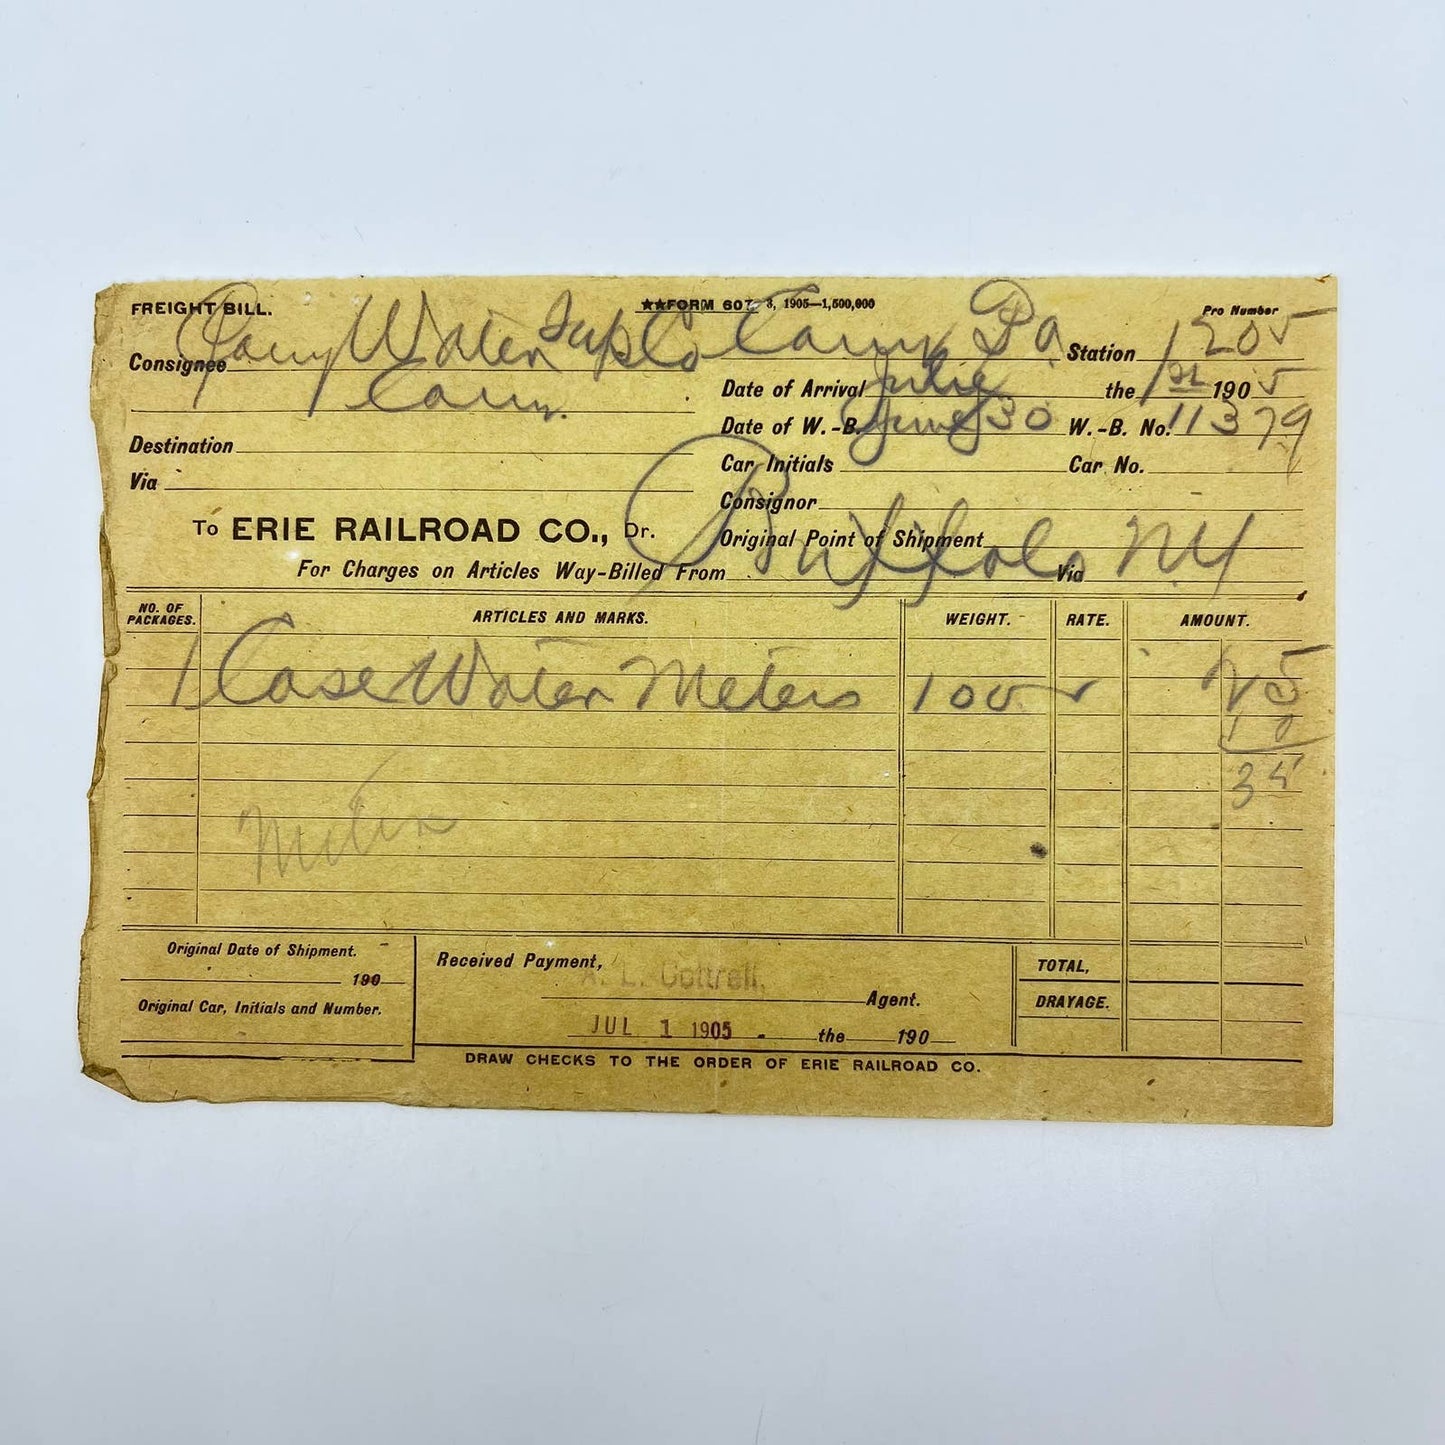 FREIGHT BILL. ★★FORM 607 3, 1905—1,500,000 Pro Number
Consignee Corry Water Sup Co Corry Pa Station 1205
Corry. Date of Arrival July the 1st 1905
Date of W.-B. June 30 W.-B. No. 11379
Destination
Car Initials Car No.
Via
Consignor
To ERIE RAILROAD CO., Dr. Original Point of Shipment
For Charges on Articles Way-Billed From Buffalo NY Via
NO. OF PACKAGES. ARTICLES AND MARKS. WEIGHT. RATE. AMOUNT.
1 Case Water Meters 100 25
10
35
Original Date of Shipment. Received Payment, TOTAL,
190 A. L. Cottrell, Agent.
Original Car, Initials and Number. DRAYAGE.
JUL 1 1905 the 190
DRAW CHECKS TO THE ORDER OF ERIE RAILROAD CO.